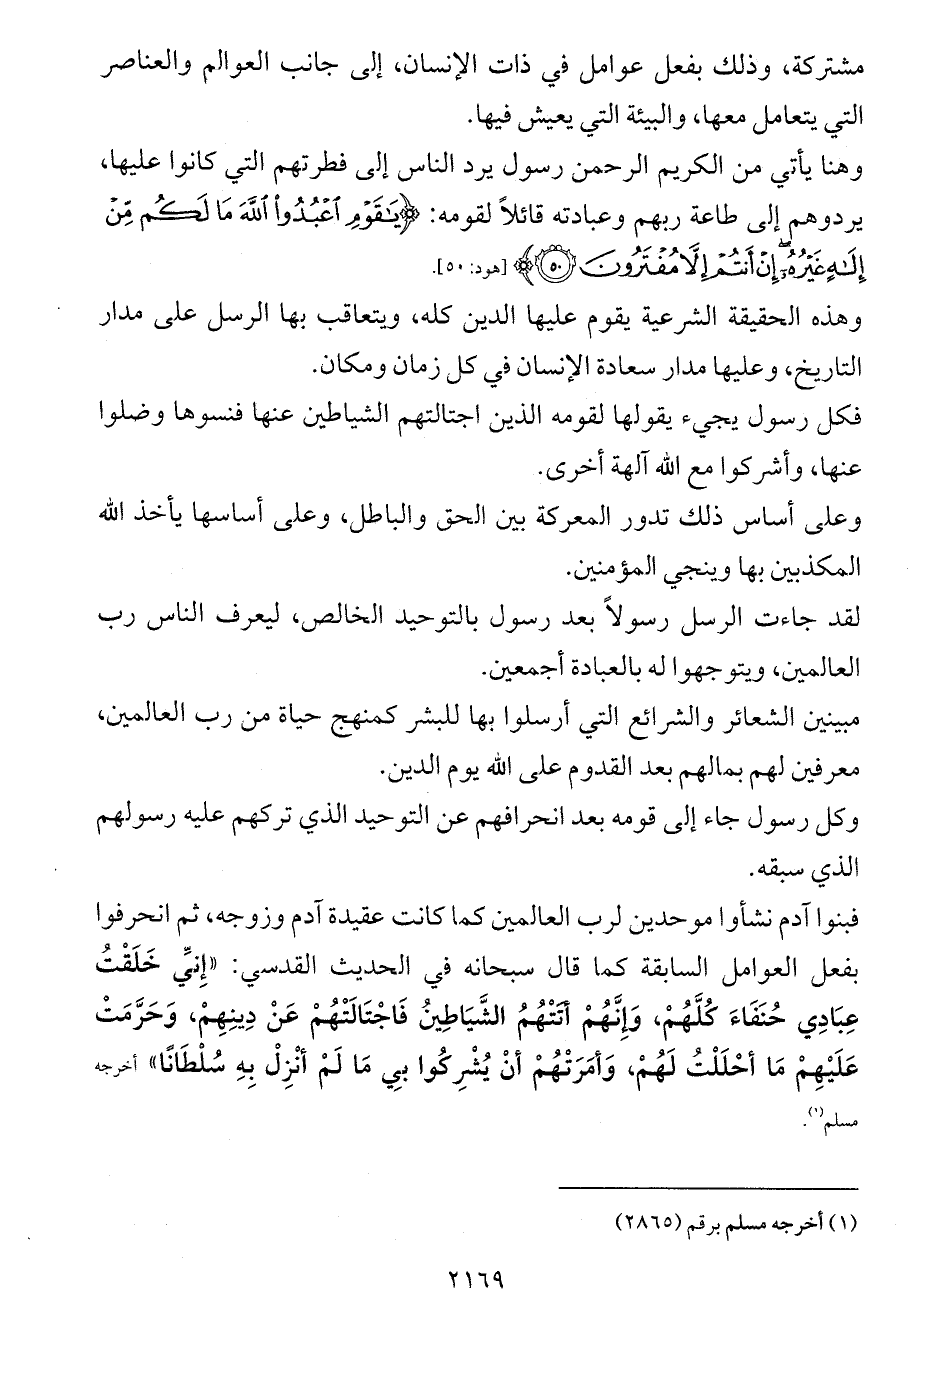 مشتركة، وذلك بفعل عوامل في ذات الإنسان، إلى جانب العوالم والعناصر
التي يتعامل معها، والبيئة التي يعيش فيها.
وهنا يأتي من الكريم الرحمن رسول يرد الناس إلى فطرتهم التي كانوا عليها،
يردوهم إلى طاعة ربهم وعبادته قائلاً لقومه: ﴿يَـٰقَوْمِ ٱعْبُدُوا۟ ٱللَّهَ مَا لَكُم مِّنْ
إِلَـٰهٍ غَيْرُهُۥٓ ۖ إِنْ أَنتُمْ إِلَّا مُفْتَرُونَ ۝٥٠﴾ [هود: ٥٠].
وهذه الحقيقة الشرعية يقوم عليها الدين كله، ويتعاقب بها الرسل على مدار
التاريخ، وعليها مدار سعادة الإنسان في كل زمان ومكان.
فكل رسول يجيء يقولها لقومه الذين اجتالتهم الشياطين عنها فنسوها وضلوا
عنها، وأشركوا مع الله آلهة أخرى.
وعلى أساس ذلك تدور المعركة بين الحق والباطل، وعلى أساسها يأخذ الله
المكذبين بها وينجي المؤمنين.
لقد جاءت الرسل رسولاً بعد رسول بالتوحيد الخالص، ليعرف الناس رب
العالمين، ويتوجهوا له بالعبادة أجمعين.
مبينين الشعائر والشرائع التي أرسلوا بها للبشر كمنهج حياة من رب العالمين،
معرفين لهم بمالهم بعد القدوم على الله يوم الدين.
وكل رسول جاء إلى قومه بعد انحرافهم عن التوحيد الذي تركهم عليه رسولهم
الذي سبقه.
فبنوا آدم نشأوا موحدين لرب العالمين كما كانت عقيدة آدم وزوجه، ثم انحرفوا
بفعل العوامل السابقة كما قال سبحانه في الحديث القدسي: «إِنِّي خَلَقْتُ
عِبَادِي حُنَفَاءَ كُلَّهُمْ، وَإِنَّهُمْ أتَتْهُمُ الشَّيَاطِينُ فَاجْتَالَتْهُمْ عَنْ دِينِهِمْ، وَحَرَّمَتْ
عَلَيْهِمْ مَا أحْلَلْتُ لَهُمْ، وَأمَرَتْهُمْ أنْ يُشْرِكُوا بِي مَا لَمْ أنْزِلْ بِهِ سُلْطَانًا» أخرجه
مسلم(١).
(١) أخرجه مسلم برقم (٢٨٦٥)
٢١٦٩